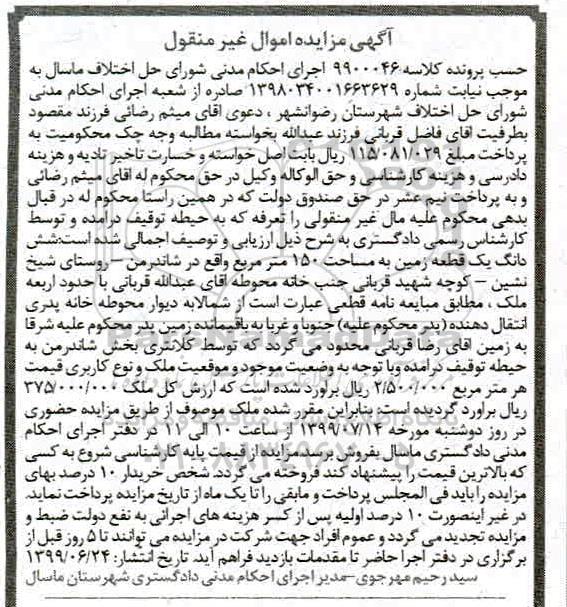 آگهی مزایده اموال غیر منقول
حسب پرونده کلاسه ۹۹۰۰۰۴۶ اجرای احکام مدنی شورای حل اختلاف ماسال به
موجب نیابت شماره ۱۳۹۸۰۳۴۰۰۱۶۶۳۶۲۹ صادره از شعبه اجرای احکام مدنی
شورای حل اختلاف شهرستان رضوانشهر ، دعوی اقای میثم رضائی فرزند مقصود
بطرفیت اقای فاضل قربانی فرزند عبدالله بخواسته مطالبه وجه چک محکومیت به
پرداخت مبلغ ۱۱۵/۰۸۱/۰۲۹ ریال بابت اصل خواسته و خسارت تاخیر تادیه و هزینه
دادرسی و هزینه کارشناسی و حق الوکاله وکیل در حق محکوم له اقای میثم رضائی
و به پرداخت نیم عشر در حق صندوق دولت که در همین راستا محکوم له در قبال
بدهی محکوم علیه مال غیر منقولی را تعرفه که به حیطه توقیف درامده و توسط
کارشناس رسمی دادگستری به شرح ذیل ارزیابی و توصیف اجمالی شده است:شش
دانگ یک قطعه زمین به مساحت ۱۵۰ متر مربع واقع در شاندرمن – روستای شیخ
نشین – کوچه شهید قربانی جنب خانه محوطه اقای عبدالله قربانی با حدود اربعه
ملک ، مطابق مبایعه نامه قطعی عبارت است از شمالابه دیوار محوطه خانه پدری
انتقال دهنده (پدر محکوم علیه) جنوبا و غربا به باقیمانده زمین پدر محکوم علیه شرقا
به زمین اقای رضا قربانی محدود می گردد که توسط کلانتری بخش شاندرمن به
حیطه توقیف درامده وبا توجه به وضعیت موجود و موقعیت ملک و نوع کاربری قیمت
هر متر مربع ۲/۵۰۰/۰۰۰ ریال براورد شده است که ارزش کل ملک ۳۷۵/۰۰۰/۰۰۰
ریال براورد گردیده است: بنابراین مقرر شده ملک موصوف از طریق مزایده حضوری
در روز دوشنبه مورخه ۱۳۹۹/۰۷/۱۴ از ساعت ۱۰ الی ۱۱ در دفتر اجرای احکام
مدنی دادگستری ماسال بفروش برسد.مزایده از قیمت پایه کارشناسی شروع به کسی
که بالاترین قیمت را پیشنهاد کند فروخته می گردد. شخص خریدار ۱۰ درصد بهای
مزایده را باید فی المجلس پرداخت و مابقی را تا یک ماه از تاریخ مزایده پرداخت نماید.
در غیر اینصورت ۱۰ درصد اولیه پس از کسر هزینه های اجرائی به نفع دولت ضبط و
مزایده تجدید می گردد و عموم افراد جهت شرکت در مزایده می توانند تا ۵ روز قبل از
برگزاری در دفتر اجرا حاضر تا مقدمات بازدید فراهم آید. تاریخ انتشار: ۱۳۹۹/۰۶/۲۴
سید رحیم مهرجوی-مدیر اجرای احکام مدنی دادگستری شهرستان ماسال